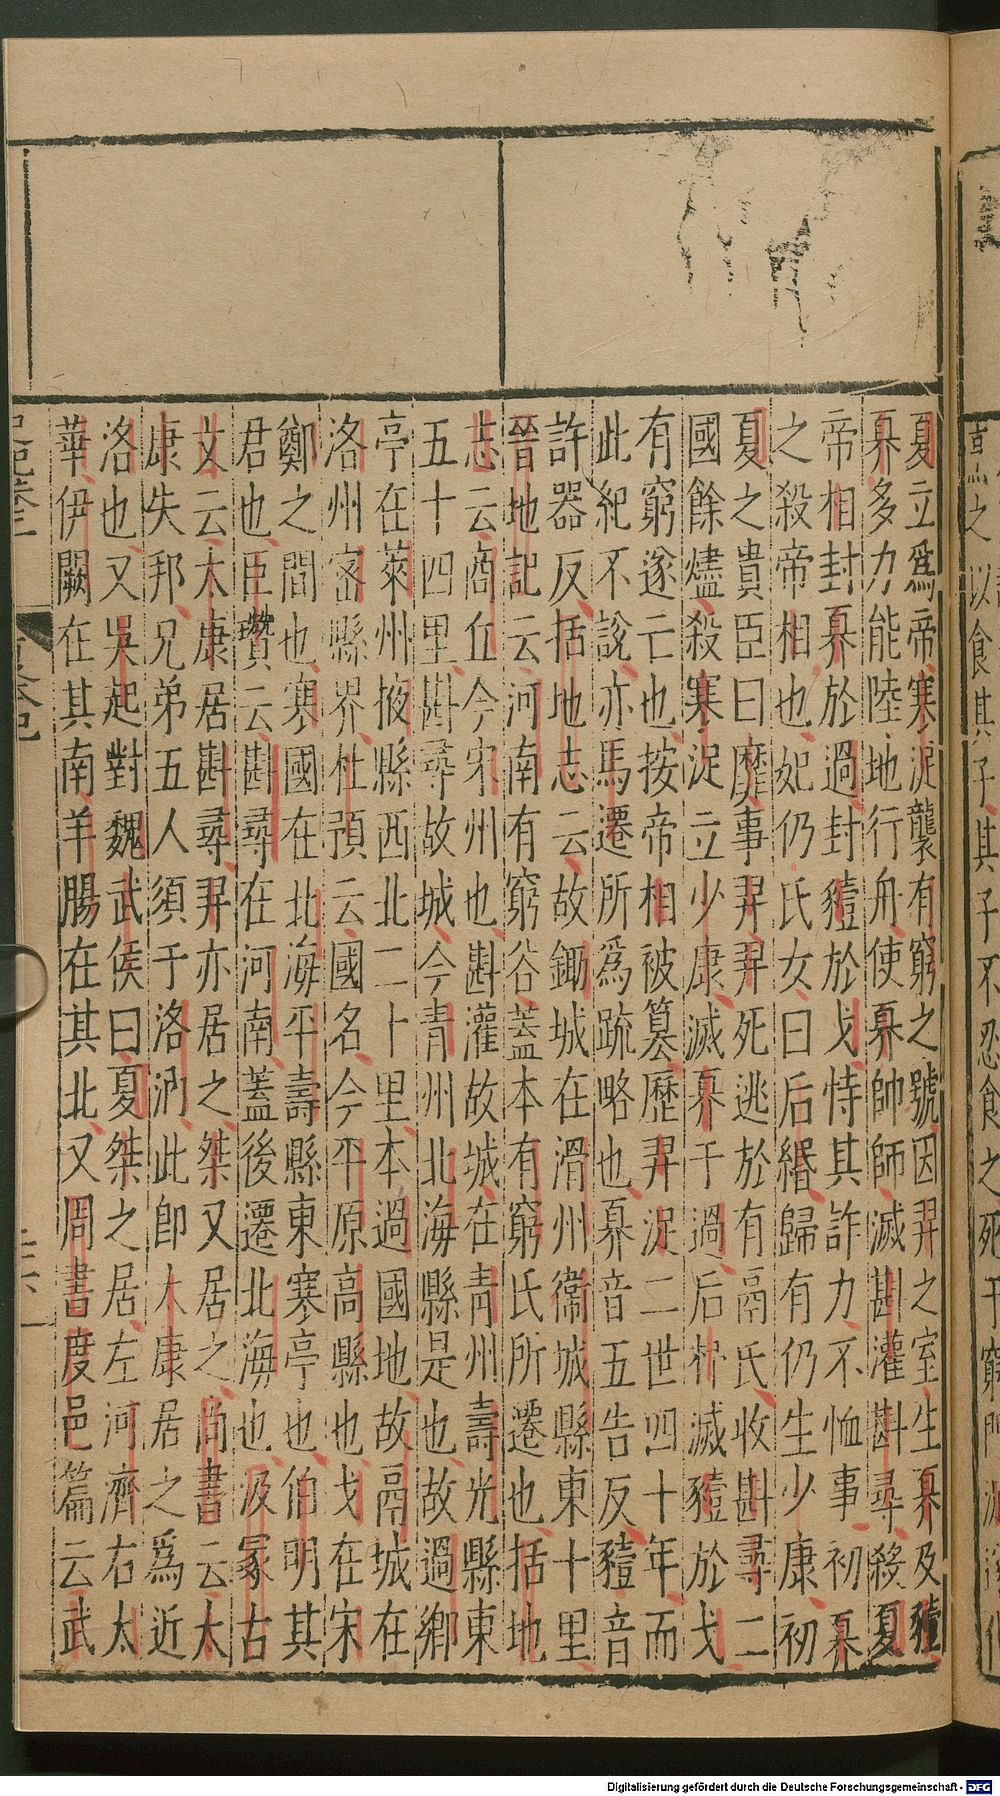 夏立爲帝寒浞襲有窮之號因羿之室生奡及豷
奡多力能陸地行舟使奡帥師滅斟灌斟尋殺夏
帝相封奡於過封豷於戈恃其詐力不恤事初奡
之殺帝相也妃仍氏女曰后緡歸有仍生少康初
夏之貴臣曰靡事羿羿死逃於有鬲氏收斟尋二
國餘燼殺寒浞立少康滅奡于過后杼滅豷於戈
有窮遂亡也按帝相被篡歷羿浞二世四十年而
此紀不說亦馬遷所爲疏略也奡音五告反豷音
許器反括地志云故鋤城在滑州衞城縣東十里
晉地記云河南有窮谷蓋本有窮氏所遷也括地
志云商丘今宋州也斟灌故城在青州壽光縣東
五十四里斟尋故城今青州北海縣是也故過鄉
亭在萊州掖縣西北二十里本過國地故鬲城在
洛州密縣界杜預云國名今平原高縣也戈在宋
鄭之間也寒國在北海平壽縣東寒亭也伯明其
君也臣瓚云斟尋在河南蓋後遷北海也汲冢古
文云太康居斟尋羿亦居之桀又居之尚書云太
康失邦兄弟五人須于洛汭此即太康居之爲近
洛也又吳起對魏武侯曰夏桀之居左河濟右太
華伊闕在其南羊腸在其北又周書度邑篇云武
Digitalisierung gefördert durch die Deutsche Forschungsgemeinschaft - DFG